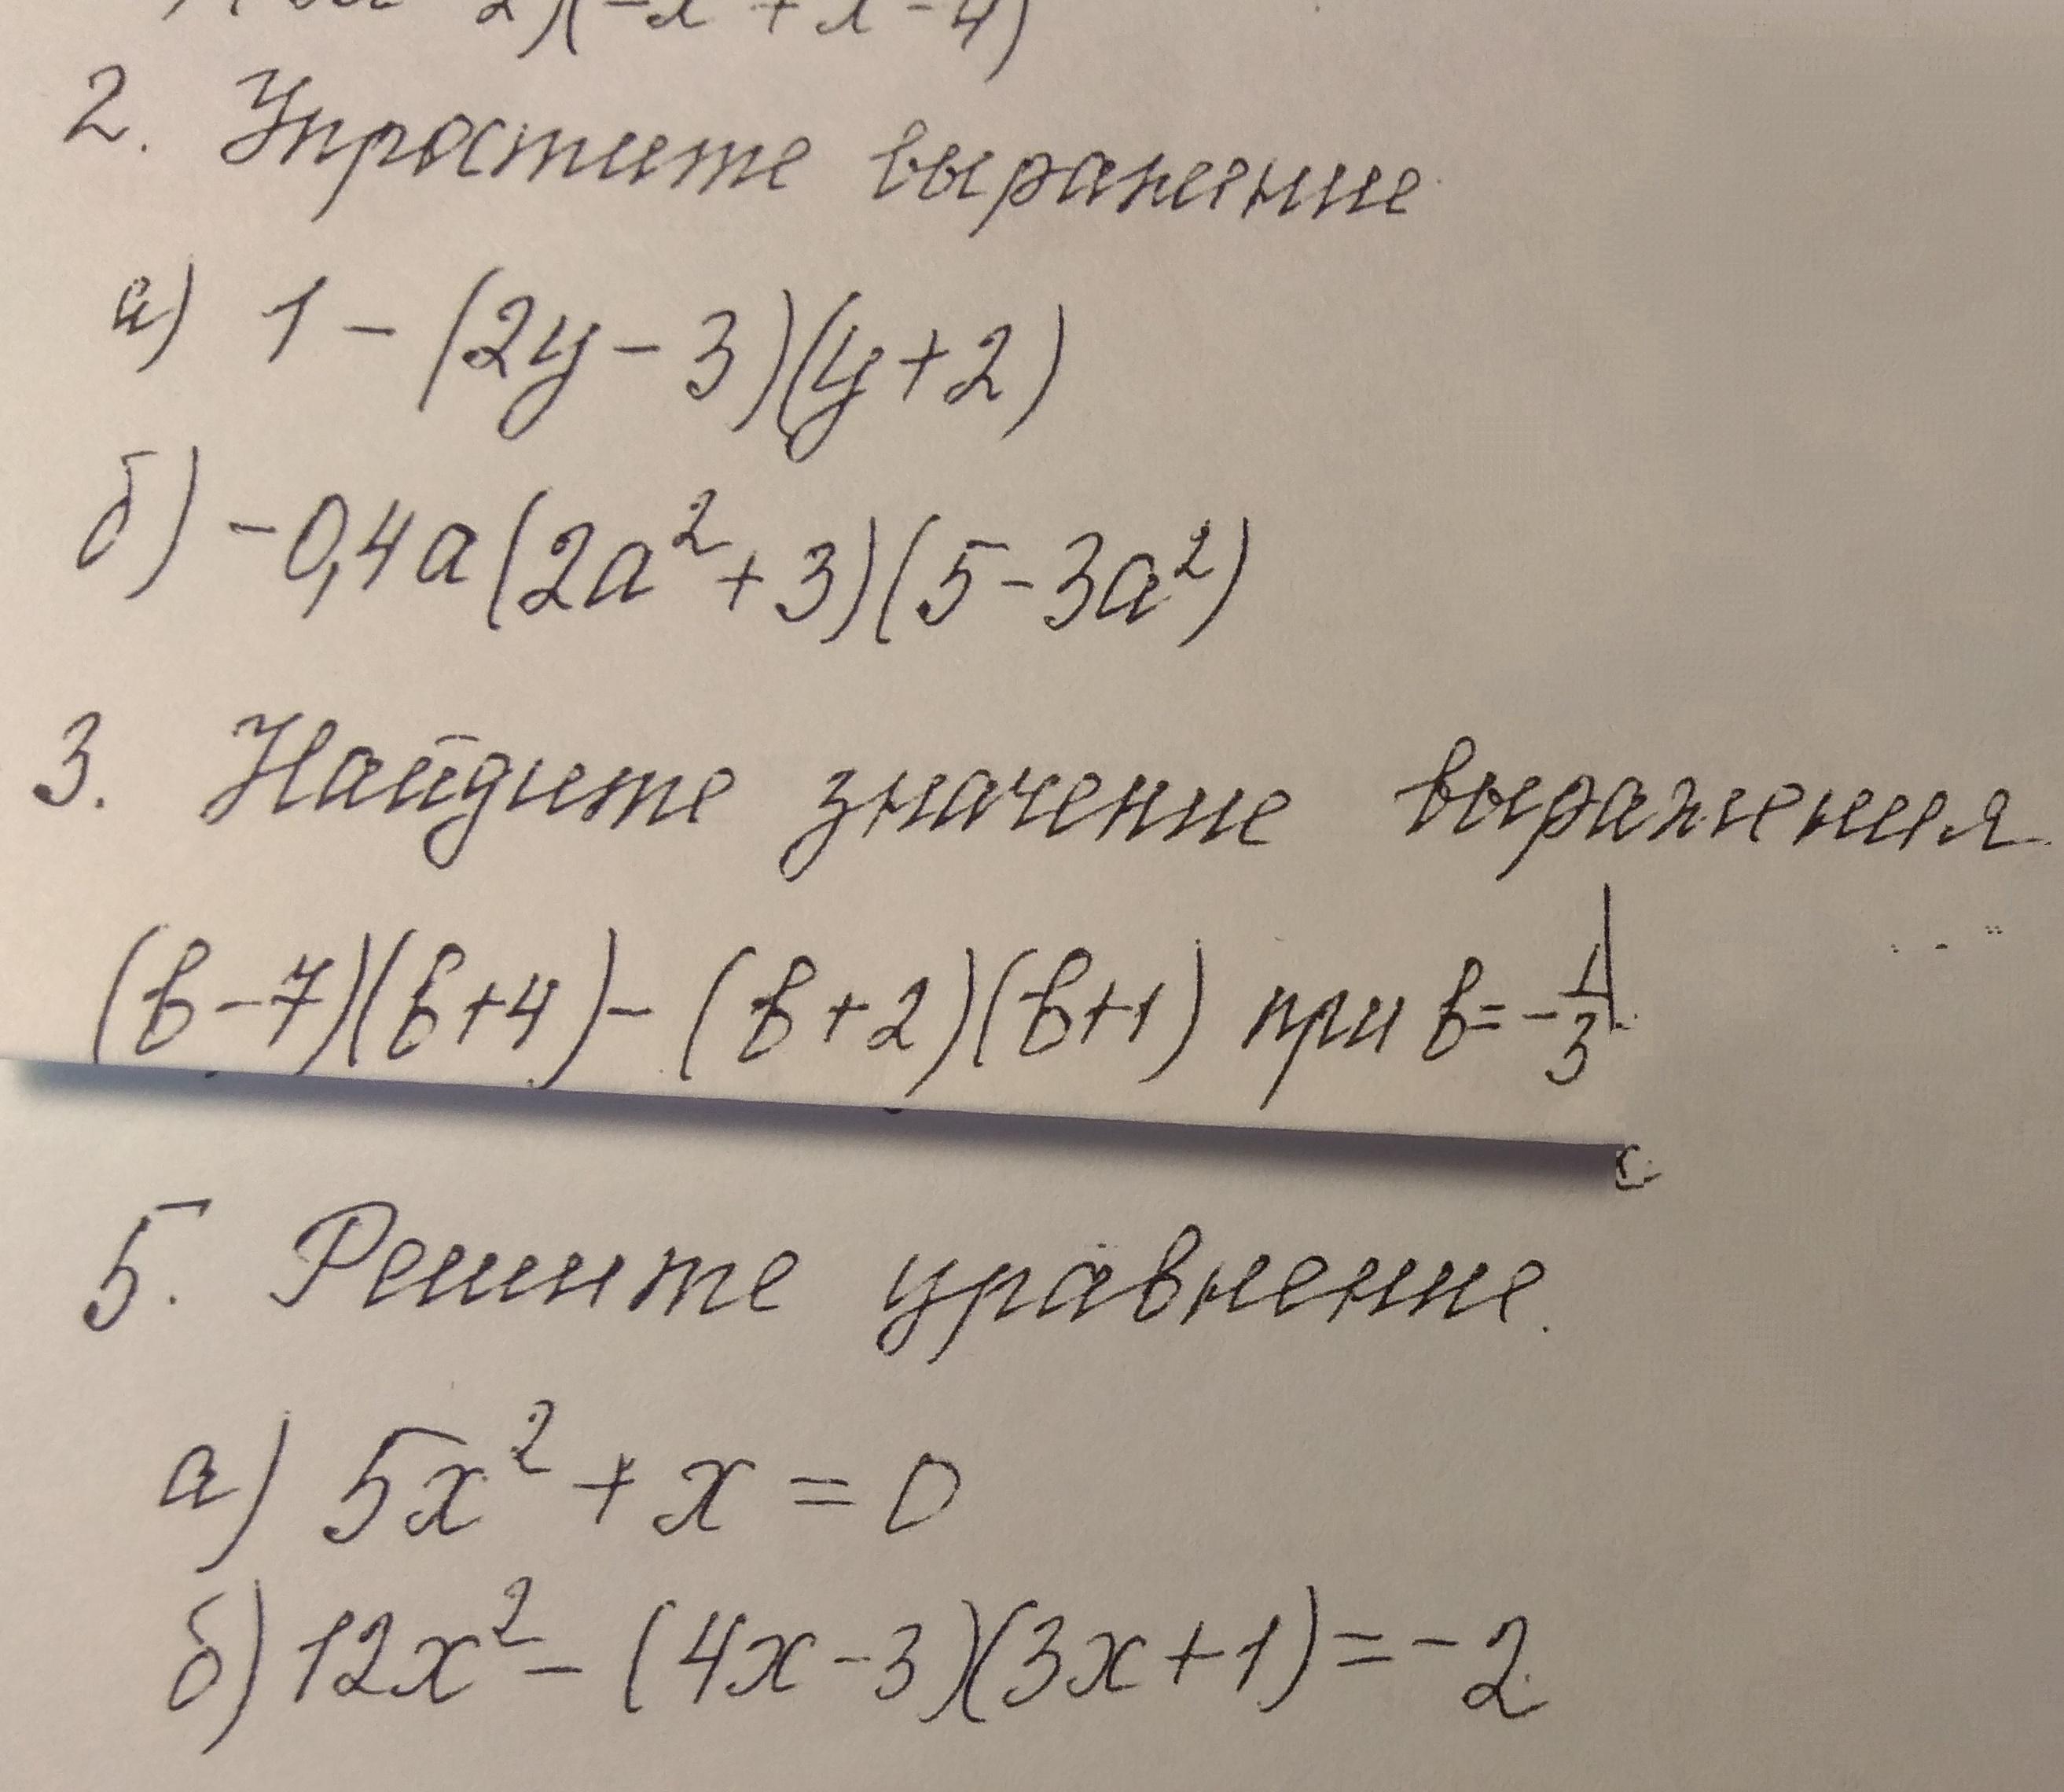 2)(-x + x - 4)
2. Упростите выражение
а) 1 - (2y - 3)(y + 2)
б) -0,4a(2a² + 3)(5 - 3a²)
3. Найдите значение выражения
(в - 7)(в + 4) - (в + 2)(в + 1) при в = -1/3
5. Решите уравнение.
а) 5x² + x = 0
б) 12x² - (4x - 3)(3x + 1) = -2